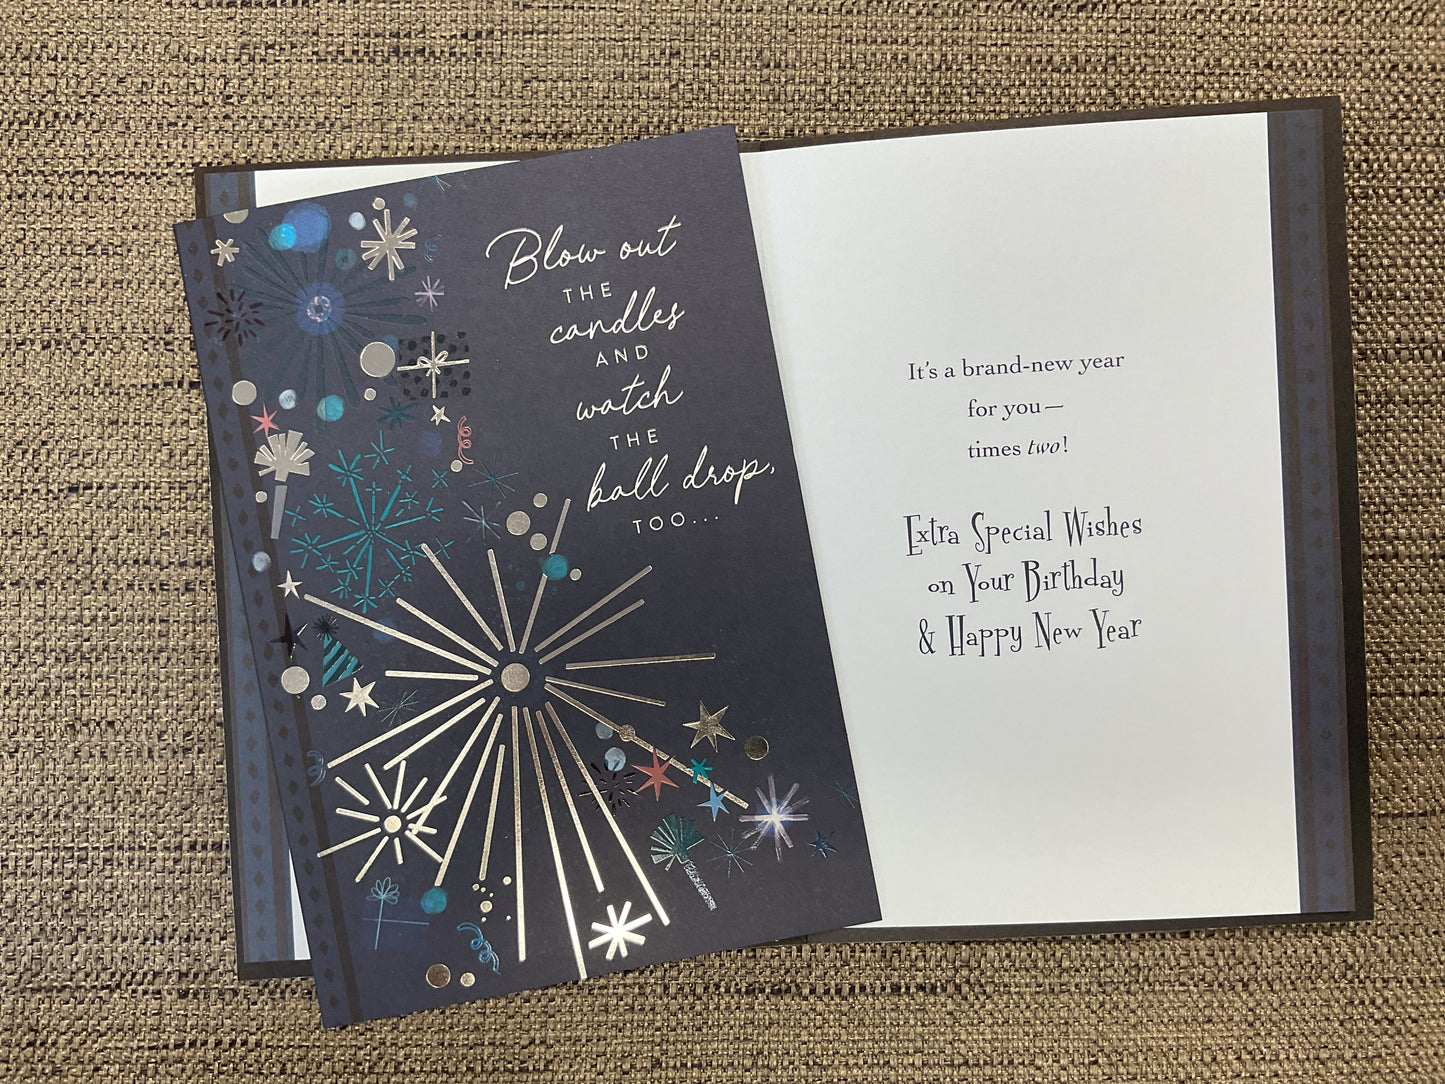 Blow out
THE
candles
AND
watch
THE
ball drop,
TOO...
It's a brand-new year
for you—
times two!
Extra Special Wishes
on Your Birthday
& Happy New Year